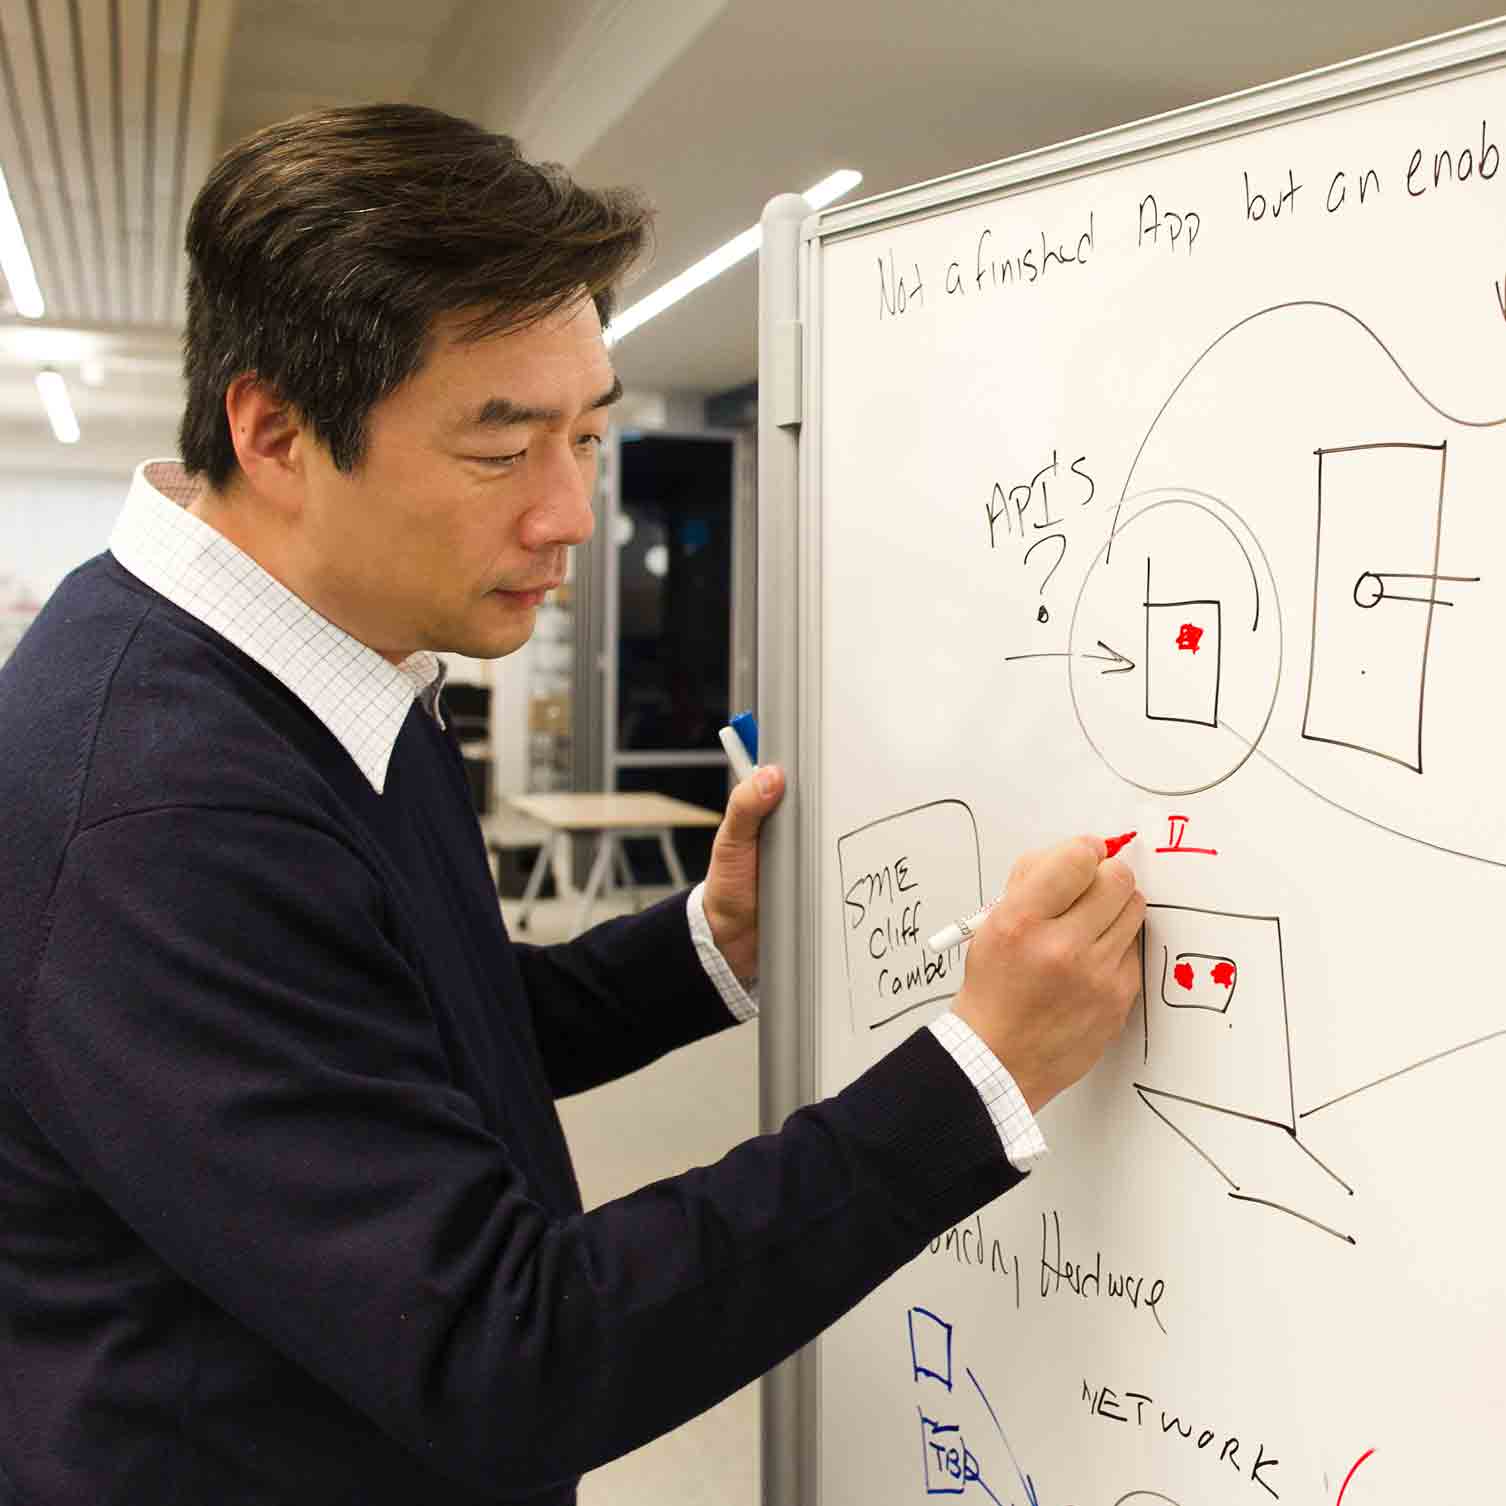 Not a finished App but an enab
API's
?
II
SME
Cliff
Hardware
NETWORK
TBD